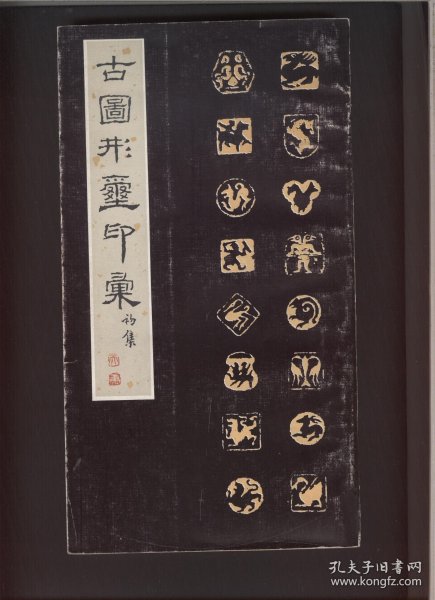 古圖形璽印彙
初集
孔夫子旧书网
www.kongfz.com